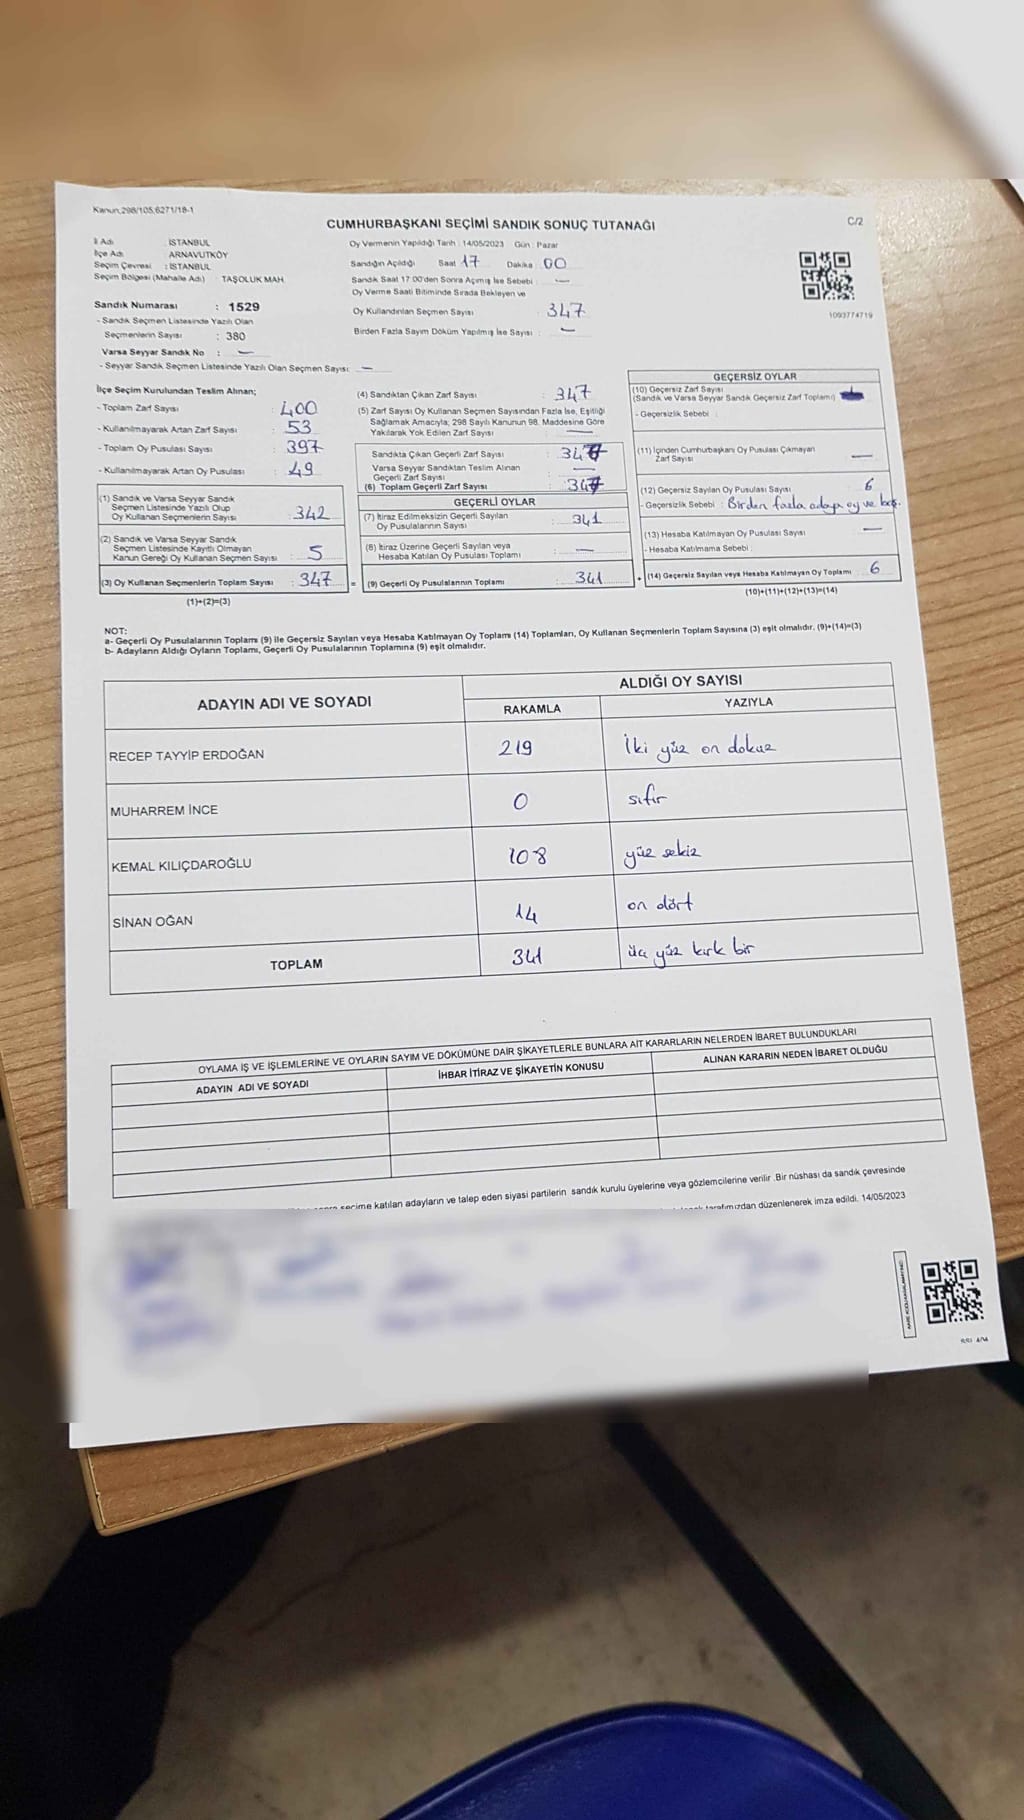 Kanun;298/105;6271/18-1
C/2
CUMHURBAŞKANI SEÇİMİ SANDIK SONUÇ TUTANAĞI
İl Adı : İSTANBUL
İlçe Adı : ARNAVUTKÖY
Seçim Çevresi : İSTANBUL
Seçim Bölgesi (Mahalle Adı) : TAŞOLUK MAH.
Sandık Numarası : 1529
- Sandık Seçmen Listesinde Yazılı Olan
Seçmenlerin Sayısı : 380
Varsa Seyyar Sandık No : —
- Seyyar Sandık Seçmen Listesinde Yazılı Olan Seçmen Sayısı: —
Oy Vermenin Yapıldığı Tarih : 14/05/2023 Gün : Pazar
Sandığın Açıldığı Saat 17 Dakika 00
Sandık Saat 17:00'den Sonra Açımış İse Sebebi : —
Oy Verme Saati Bitiminde Sırada Bekleyen ve
Oy Kullandırılan Seçmen Sayısı : 347
Birden Fazla Sayım Döküm Yapılmış İse Sayısı : —
1093774719
İlçe Seçim Kurulundan Teslim Alınan;
- Toplam Zarf Sayısı : 400
- Kullanılmayarak Artan Zarf Sayısı : 53
- Toplam Oy Pusulası Sayısı : 397
- Kullanılmayarak Artan Oy Pusulası : 49
(1) Sandık ve Varsa Seyyar Sandık
Seçmen Listesinde Yazılı Olup
Oy Kullanan Seçmenlerin Sayısı : 342
(2) Sandık ve Varsa Seyyar Sandık
Seçmen Listesinde Kayıtlı Olmayan
Kanun Gereği Oy Kullanan Seçmen Sayısı : 5
(3) Oy Kullanan Seçmenlerin Toplam Sayısı : 347 =
(1)+(2)=(3)
(4) Sandıktan Çıkan Zarf Sayısı : 347
(5) Zarf Sayısı Oy Kullanan Seçmen Sayısından Fazla İse, Eşitliği
Sağlamak Amacıyla; 298 Sayılı Kanunun 98. Maddesine Göre
Yakılarak Yok Edilen Zarf Sayısı : —
Sandıkta Çıkan Geçerli Zarf Sayısı : 347
Varsa Seyyar Sandıktan Teslim Alınan
Geçerli Zarf Sayısı : —
(6) Toplam Geçerli Zarf Sayısı : 347
GEÇERLİ OYLAR
(7) İtiraz Edilmeksizin Geçerli Sayılan
Oy Pusulalarının Sayısı : 341
(8) İtiraz Üzerine Geçerli Sayılan veya
Hesaba Katılan Oy Pusulası Toplamı : —
(9) Geçerli Oy Pusulalarının Toplamı : 341 +
GEÇERSİZ OYLAR
(10) Geçersiz Zarf Sayısı
(Sandık ve Varsa Seyyar Sandık Geçersiz Zarf Toplamı) :
- Geçersizlik Sebebi :
(11) İçinden Cumhurbaşkanı Oy Pusulası Çıkmayan
Zarf Sayısı : —
(12) Geçersiz Sayılan Oy Pusulası Sayısı : 6
- Geçersizlik Sebebi : Birden fazla adaya oy ve boş.
(13) Hesaba Katılmayan Oy Pusulası Sayısı : —
- Hesaba Katılmama Sebebi :
(14) Geçersiz Sayılan veya Hesaba Katılmayan Oy Toplamı : 6
(10)+(11)+(12)+(13)=(14)
NOT:
a- Geçerli Oy Pusulalarının Toplamı (9) ile Geçersiz Sayılan veya Hesaba Katılmayan Oy Toplamı (14) Toplamları, Oy Kullanan Seçmenlerin Toplam Sayısına (3) eşit olmalıdır. (9)+(14)=(3)
b- Adayların Aldığı Oyların Toplamı, Geçerli Oy Pusulalarının Toplamına (9) eşit olmalıdır.
ADAYIN ADI VE SOYADI
ALDIĞI OY SAYISI
RAKAMLA YAZIYLA
RECEP TAYYİP ERDOĞAN 219 İki yüz on dokuz
MUHARREM İNCE 0 sıfır
KEMAL KILIÇDAROĞLU 108 yüz sekiz
SİNAN OĞAN 14 on dört
TOPLAM 341 üç yüz kırk bir
OYLAMA İŞ VE İŞLEMLERİNE VE OYLARIN SAYIM VE DÖKÜMÜNE DAİR ŞİKAYETLERLE BUNLARA AİT KARARLARIN NELERDEN İBARET BULUNDUKLARI
ADAYIN ADI VE SOYADI İHBAR İTİRAZ VE ŞİKAYETİN KONUSU ALINAN KARARIN NEDEN İBARET OLDUĞU
seçime katılan adayların ve talep eden siyasi partilerin sandık kurulu üyelerine veya gözlemcilerine verilir .Bir nüshası da sandık çevresinde
tarafımızdan düzenlenerek imza edildi. 14/05/2023